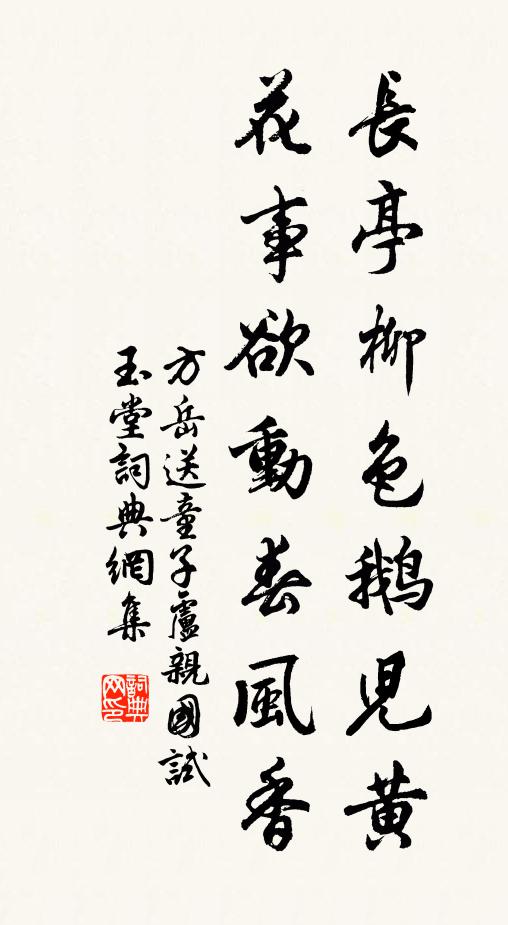 長亭柳色鵝児黄
花事欲動春風香
方岳送童子盧親國試
玉堂詞典網集
詞典网印